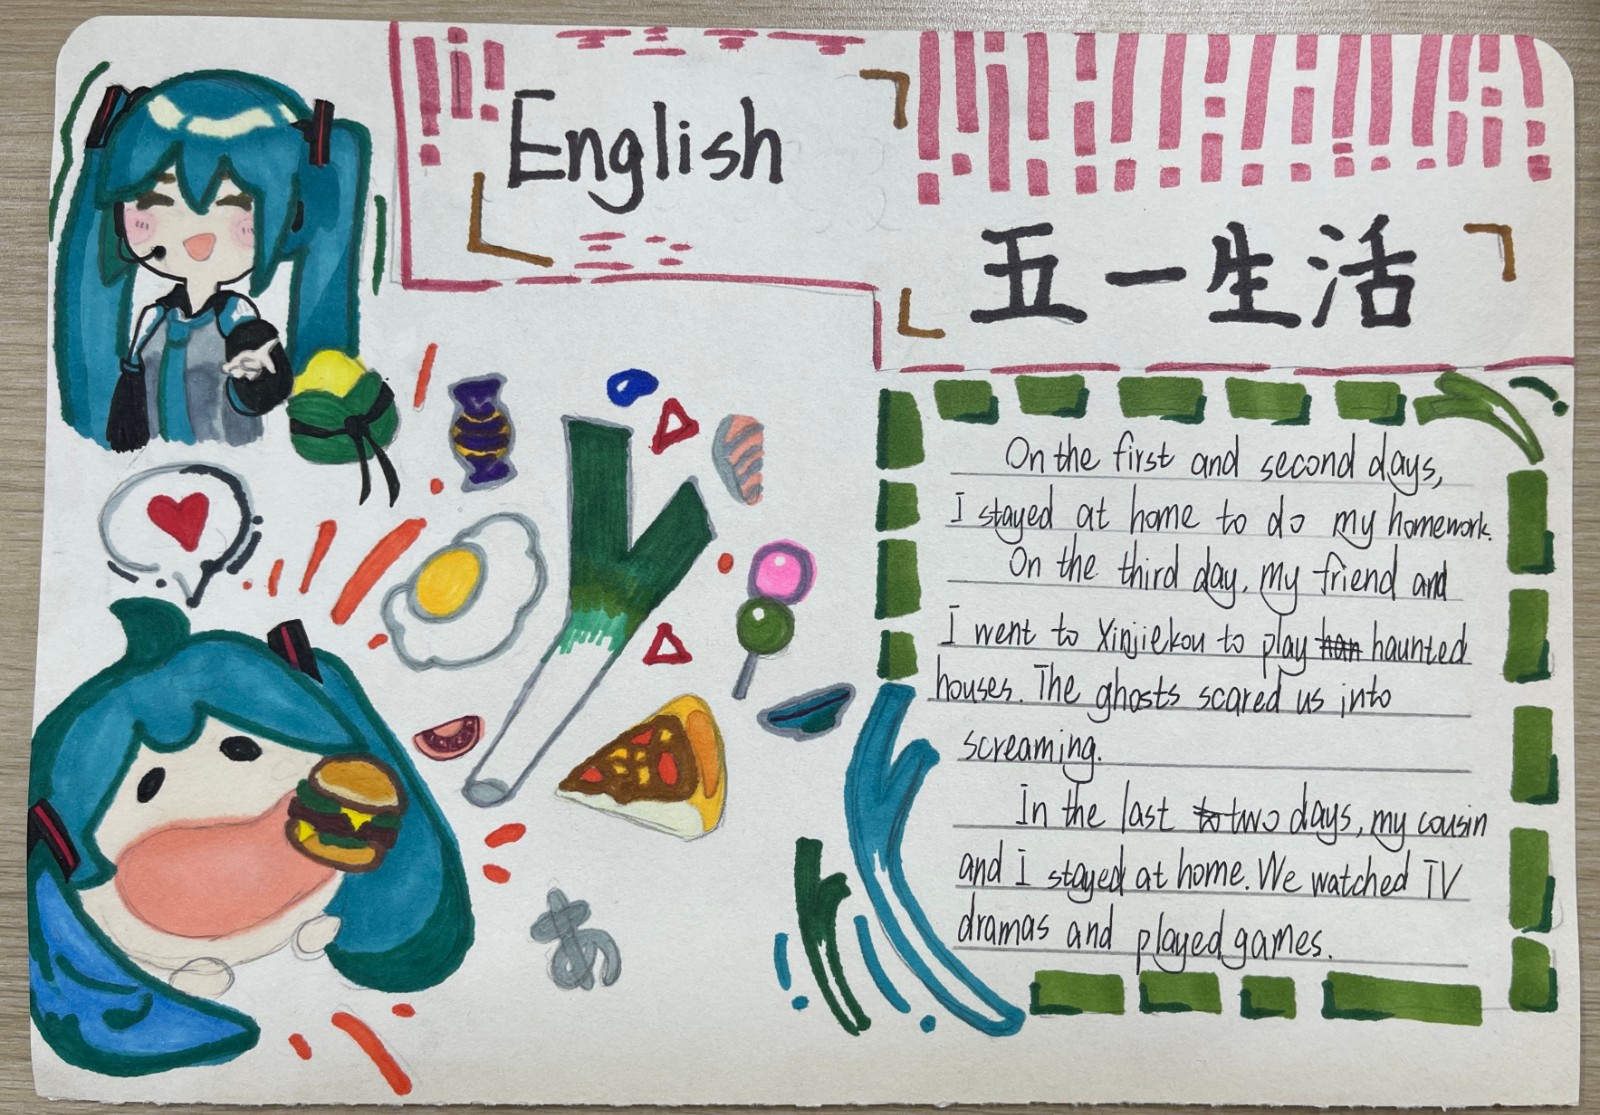 English
五一生活
On the first and second days,
I stayed at home to do my homework.
On the third day, my friend and
I went to Xinjiekou to play haunted
houses. The ghosts scared us into
screaming.
In the last two days, my cousin
and I stayed at home. We watched TV
dramas and played games.
あ